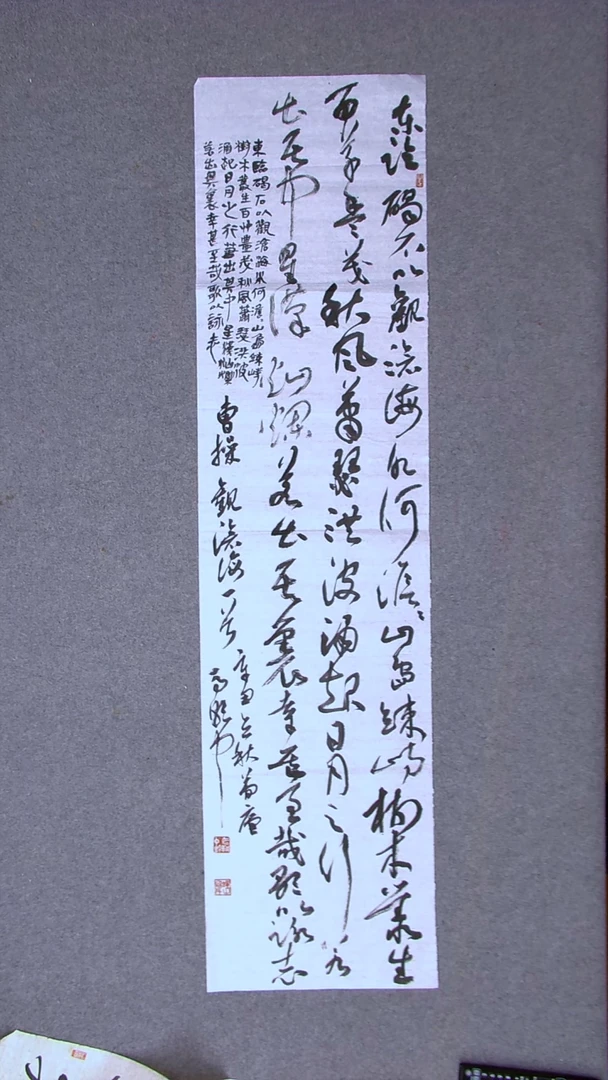 东临碣石以觀滄海水何澹澹山島竦峙樹木叢生
百草豐茂秋风蕭瑟洪波涌起日月之行若
出其中星漢燦爛若出其裏幸甚至哉歌以詠志
東臨碣石以觀滄海水何澹澹山島竦峙
樹木叢生百艸豐茂秋風蕭瑟洪波
涌起日月之行若出其中星漢燦爛
若出其裏幸甚至哉歌以詠志
曹操觀滄海一首
辛丑立秋